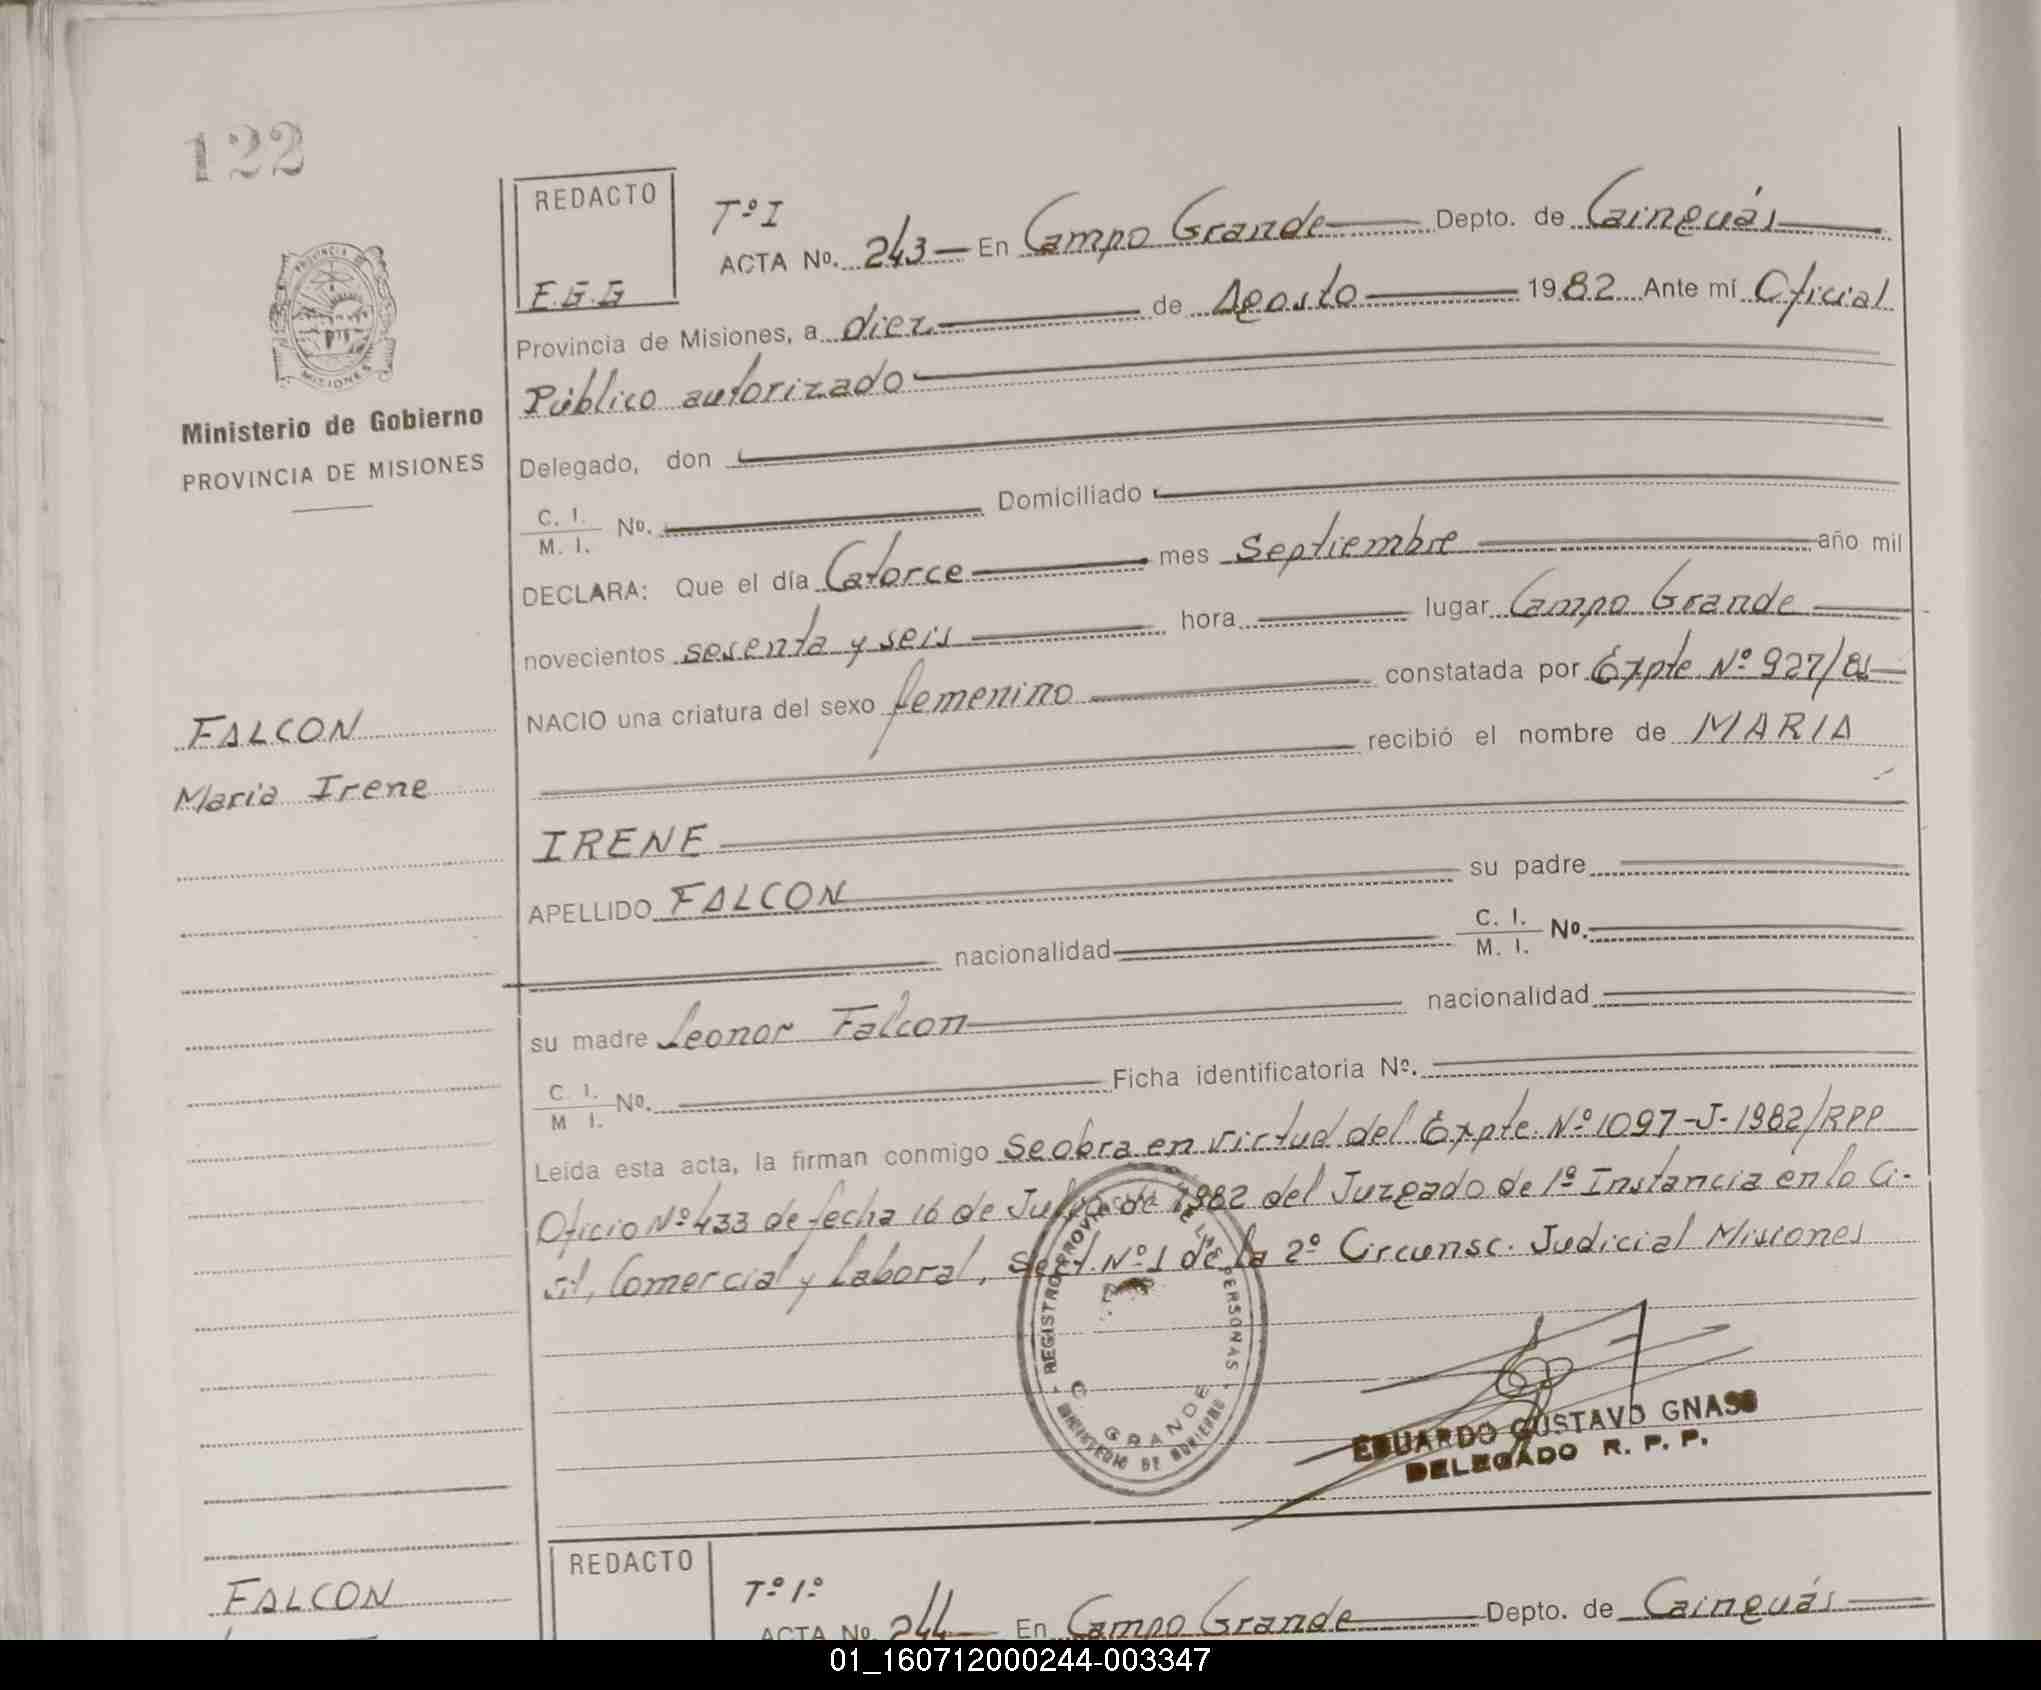 122
REDACTO
E.G.G
Tº I
ACTA Nº. 243 En Campo Grande Depto. de Cainguás
Provincia de Misiones, a diez de Agosto 1982 Ante mí Oficial
Público autorizado
PROVINCIA DE
MISIONES
Ministerio de Gobierno
PROVINCIA DE MISIONES
Delegado, don
C. I.
M. I. Nº. Domiciliado
DECLARA: Que el día Catorce mes Septiembre año mil
novecientos sesenta y seis hora lugar Campo Grande
NACIO una criatura del sexo femenino constatada por Expte Nº 927/81
FALCON
Maria Irene
recibió el nombre de MARIA
IRENE
APELLIDO FALCON su padre
nacionalidad C. I.
M. I. Nº.
su madre Leonor Falcon nacionalidad
C. I.
M I. Nº. Ficha identificatoria Nº.
Leida esta acta, la firman conmigo Se obra en virtud del Expte. Nº 1097-J-1982/RPP
Oficio Nº 433 de fecha 16 de Julio de 1982 del Juzgado de 1º Instancia en lo Ci-
vil, Comercial y Laboral, Sect. Nº 1 de la 2º Circunsc. Judicial Misiones
REGISTRO PROVINCIAL DE LAS PERSONAS
C. GRANDE
MINISTERIO DE GOBIERNO
EDUARDO GUSTAVO GNASS
DELEGADO R. P. P.
REDACTO
FALCON
Tº 1º
ACTA Nº. 244 En Campo Grande Depto. de Cainguás
01_160712000244-003347